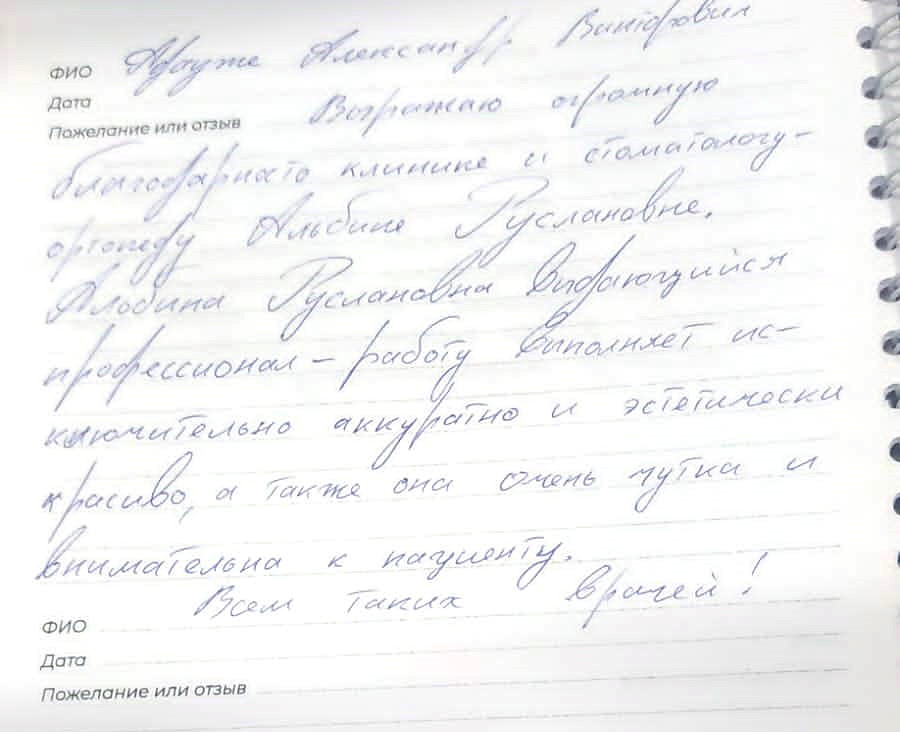 ФИО Александр
Дата
Пожелание или отзыв Выражаю огромную
благодарность клинике и стоматологу-
ортопеду Альбине Руслановне.
Альбина Руслановна выдающийся
профессионал - работу выполняет ис-
ключительно аккуратно и эстетически
красиво, а также она очень чутка и
внимательна к пациенту.
Всем таких врачей!
ФИО
Дата
Пожелание или отзыв